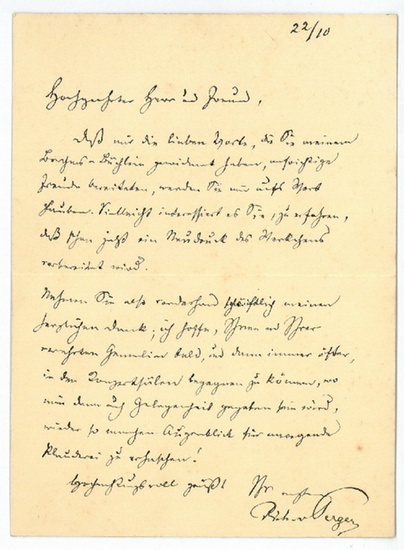 22/10
Hochgeehrter Herr und Freund,
Daß mir die lieben Worte, die Sie meinem
Brahms-Büchlein gewidmet haben, aufrichtige
Freude bereiteten, werden Sie mir aufs Wort
glauben. Vielleicht interessiert es Sie, zu erfahren,
daß schon jetzt ein Neudruck des Werkchens
vorbereitet wird.
Nehmen Sie also vorderhand schriftlich meinen
herzlichen Dank; ich hoffe, Ihnen und Ihrer
verehrten Gemahlin bald, und dann immer öfter,
in den Konzertsälen begegnen zu können, wo
mir dann auch Gelegenheit gegeben sein wird,
wieder so manchen Augenblick für anregende
Plauderei zu erhaschen!
Hochachtungsvoll grüßt Ihr
Perger